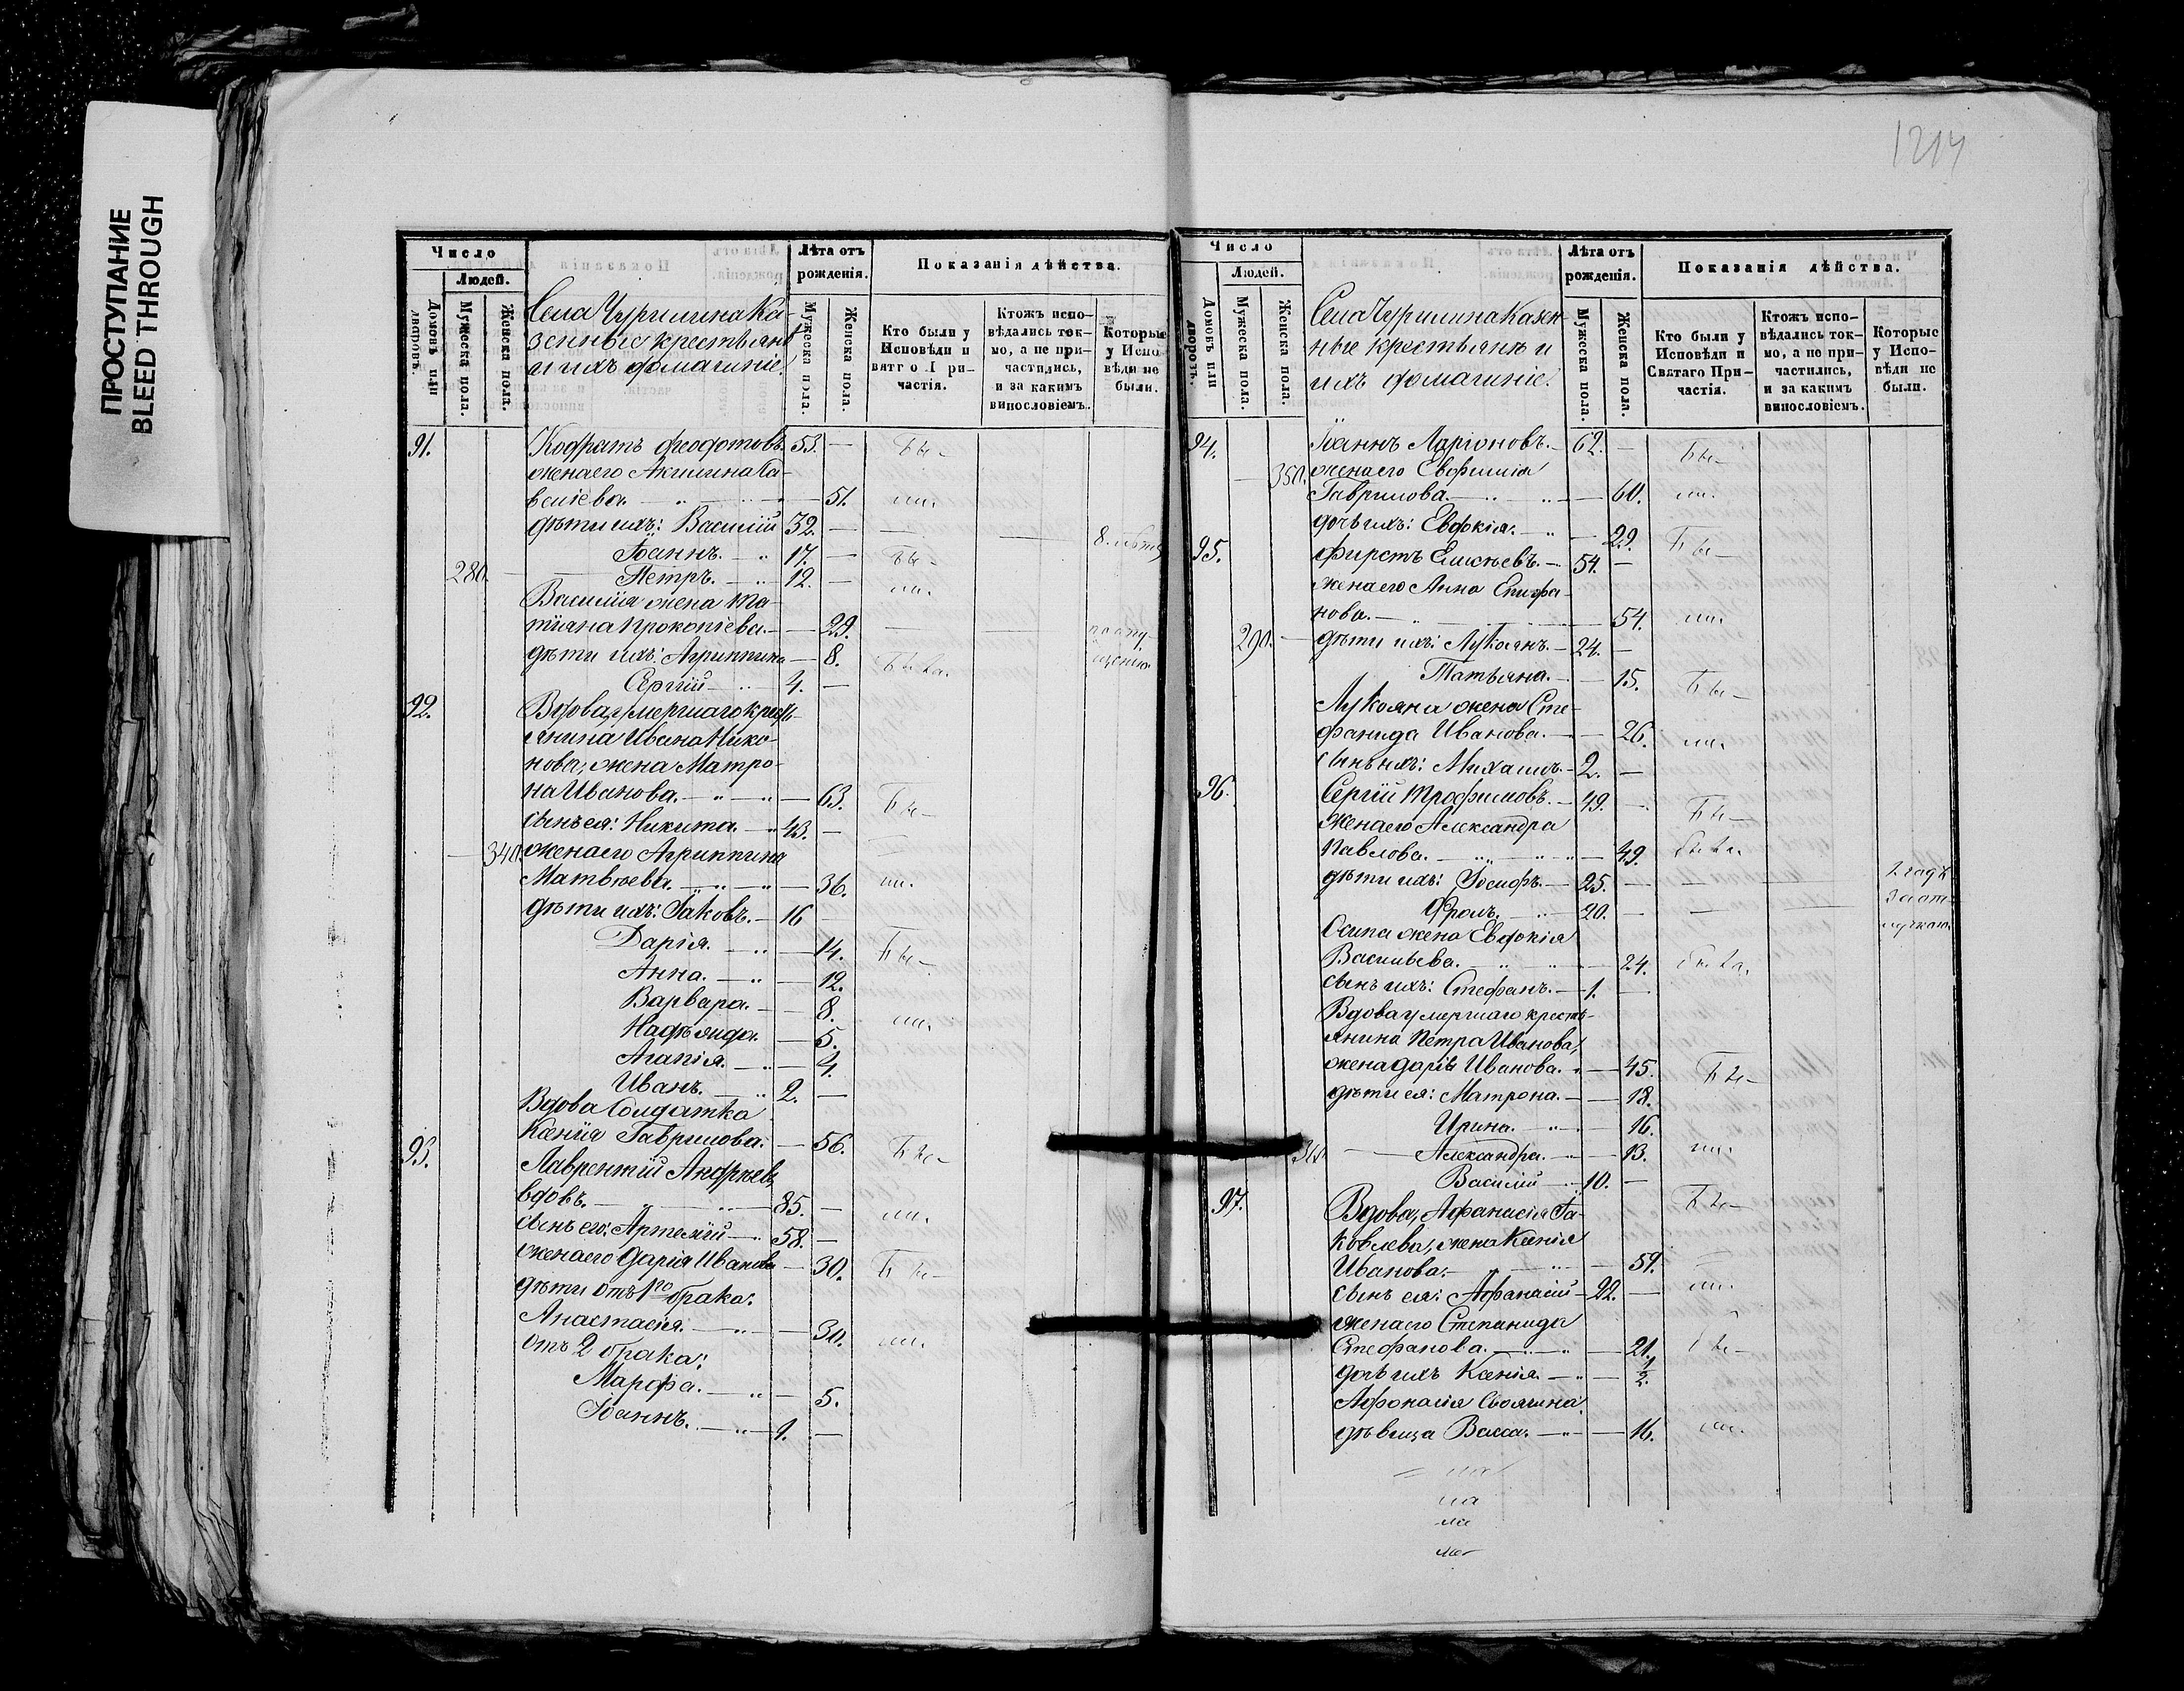 ПРОСТУПАНИЕ
BLEED THROUGH
Число
Людей.
Домовъ или дворовъ.
Мужеска пола.
Женска пола.
Села Чуришина Ка-
зенные крестьяне
и ихъ домашніе.
Лѣта отъ
рожденія.
Мужеска пола.
Женска пола.
Показанія дѣйства.
Кто были у
Исповѣди и
вятго При-
частія.
Ктожъ испо-
вѣдались ток-
мо, а не при-
частились,
и за какимъ
винословіемъ.
Которые
у Испо-
вѣди не
были.
91. Кодратъ Феодотовъ. 53. — Бы-
жена его Акилина Са-
веліева. — 51. ли.
дѣти ихъ: Василій 32. — 8. лѣтъ
Іоаннъ. — 17. — Бы-
280. Петръ. — 12. — ли.
Василія жена Та-
тіана Прокопіева. — 29. по опу-
дѣти ихъ: Агрипина — 8. Была. щенію
Сергій — 4. —
92. Вдова, умершаго кресть-
янина Ивана Нико-
нова, жена Матро-
на Иванова. — 63. Бы-
сынъ ея: Никита. — 43. —
340. жена его Агрипина
Матвѣева. — 36. ли.
дѣти ихъ: Іаковъ. — 16 —
Дарія. — 14. Бы-
Анна. — 12.
Варвара. — 8.
Надѣжда. — 5. ли.
Агапія. — 4.
Иванъ. — 2. —
Вдова Солдатка
Ксенія Гаврилова. — 56. Бы-
93. Лаврентій Андрѣевъ,
вдовъ. — 85. — ли.
сынъ его: Артемій — 58. —
жена его Дарія Иванова — 30. Бы-
дѣти отъ 1го брака:
Анастасія. — 30. ли.
отъ 2 брака:
Марфа. — 5.
Іоаннъ. — 1. —
1214
Число
Людей.
Домовъ или дворовъ.
Мужеска пола.
Женска пола.
Села Чуришина Казен-
ные крестьяне и
ихъ домашніе.
Лѣта отъ
рожденія.
Мужеска пола.
Женска пола.
Показанія дѣйства.
Кто были у
Исповѣди и
Святаго При-
частія.
Ктожъ испо-
вѣдались ток-
мо, а не при-
частились,
и за какимъ
винословіемъ.
Которые
у Испо-
вѣди не
были.
94. Іоаннъ Ларіоновъ. — 62. — Бы-
350. жена его Евфимія
Гаврилова. — 60. ли.
дочь ихъ: Евдокія. — 29. Бы-
95. Фирстъ Елисѣевъ. — 54. —
жена его Анна Епифа-
нова. — 54. ли.
290. дѣти ихъ: Лукоянъ. — 24. —
Татьяна. — 15. Бы-
Лукояна жена Сте-
фанида Иванова. — 26. ли.
сынъ ихъ: Михаилъ. — 2. —
96. Сергій Трофимовъ. — 49. — Бы-
жена его Александра
Павлова. — 49. была.
дѣти ихъ: Іосифъ. — 25. — 2 года
Фролъ. — 20. — за от-
лучкою
Осипа жена Евдокія
Васильева. — 24. была.
сынъ ихъ: Стефанъ. — 1. —
Вдова умершаго кресть-
янина Петра Иванова,
жена Дарія Иванова. — 45. Бы-
дѣти ея: Матрона. — 18.
Ирина. — 16.
Александра. — 13. ли.
Василій — 10. —
97. Вдова, Афанасія Іа- Бы-
ковлева, жена Ксенія
Иванова. — 59.
сынъ ея: Афанасій — 22. — ли.
жена его Степанида
Стефанова. — 21. Бы-
дочь ихъ Ксенія. — 1/2.
Афонасія Своячина
дѣвица Васса. — 16. ли.